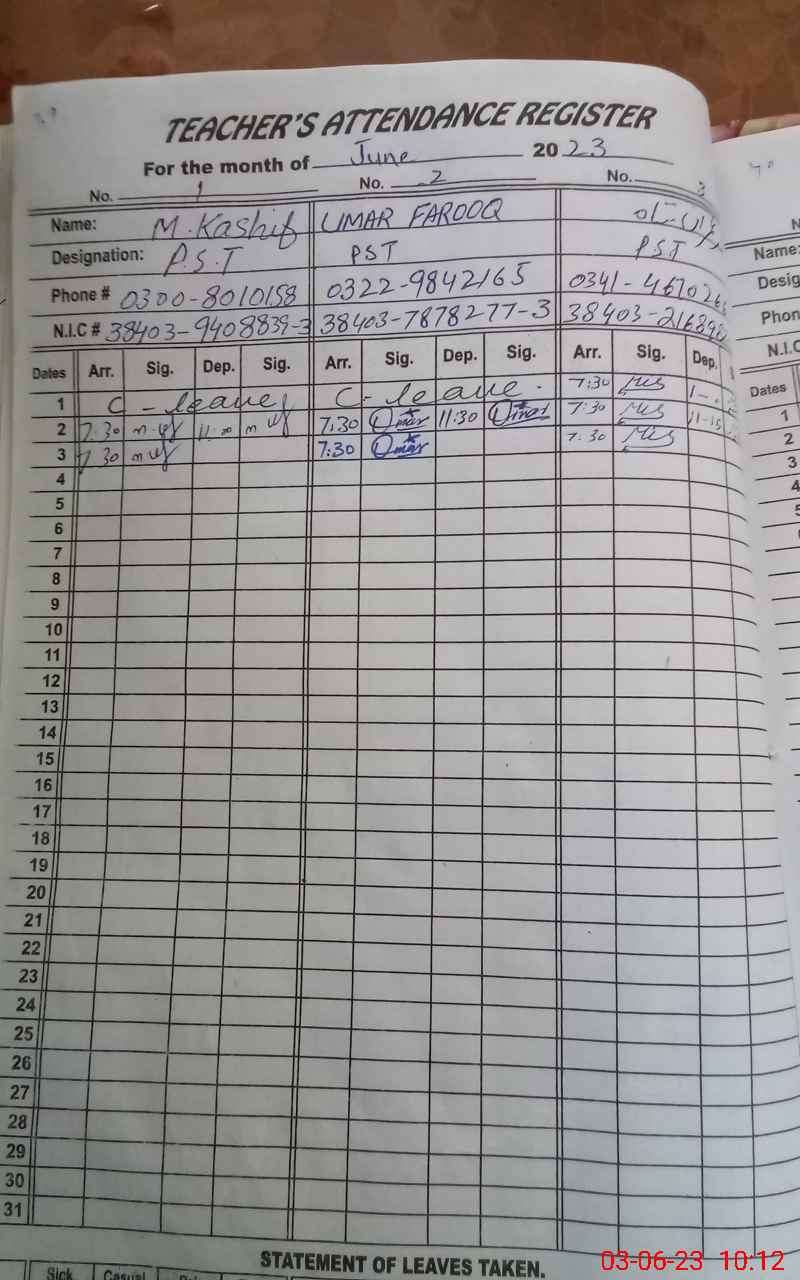 TEACHER'S ATTENDANCE REGISTER
For the month of June 2023
No. 1 No. 2 No. 3
Name: M. Kashif UMAR FAROOQ
Designation: P.S.T PST PST
Phone # 0300-8010158 0322-9842165 0341-
N.I.C # 38403-9408839-3 38403-7878277-3 38403-
Dates Arr. Sig. Dep. Sig. Arr. Sig. Dep. Sig. Arr. Sig. Dep.
1 C-leave C-leave. 7:30
2 7:30 11:30 7:30 Omar 11:30 Omar 7:30 11-15
3 7 30 7:30 Omar 7:30
4
5
6
7
8
9
10
11
12
13
14
15
16
17
18
19
20
21
22
23
24
25
26
27
28
29
30
31
STATEMENT OF LEAVES TAKEN.
Sick Casual
Name:
Phon
N.I.C
Dates
1
2
3
4
5
03-06-23 10:12